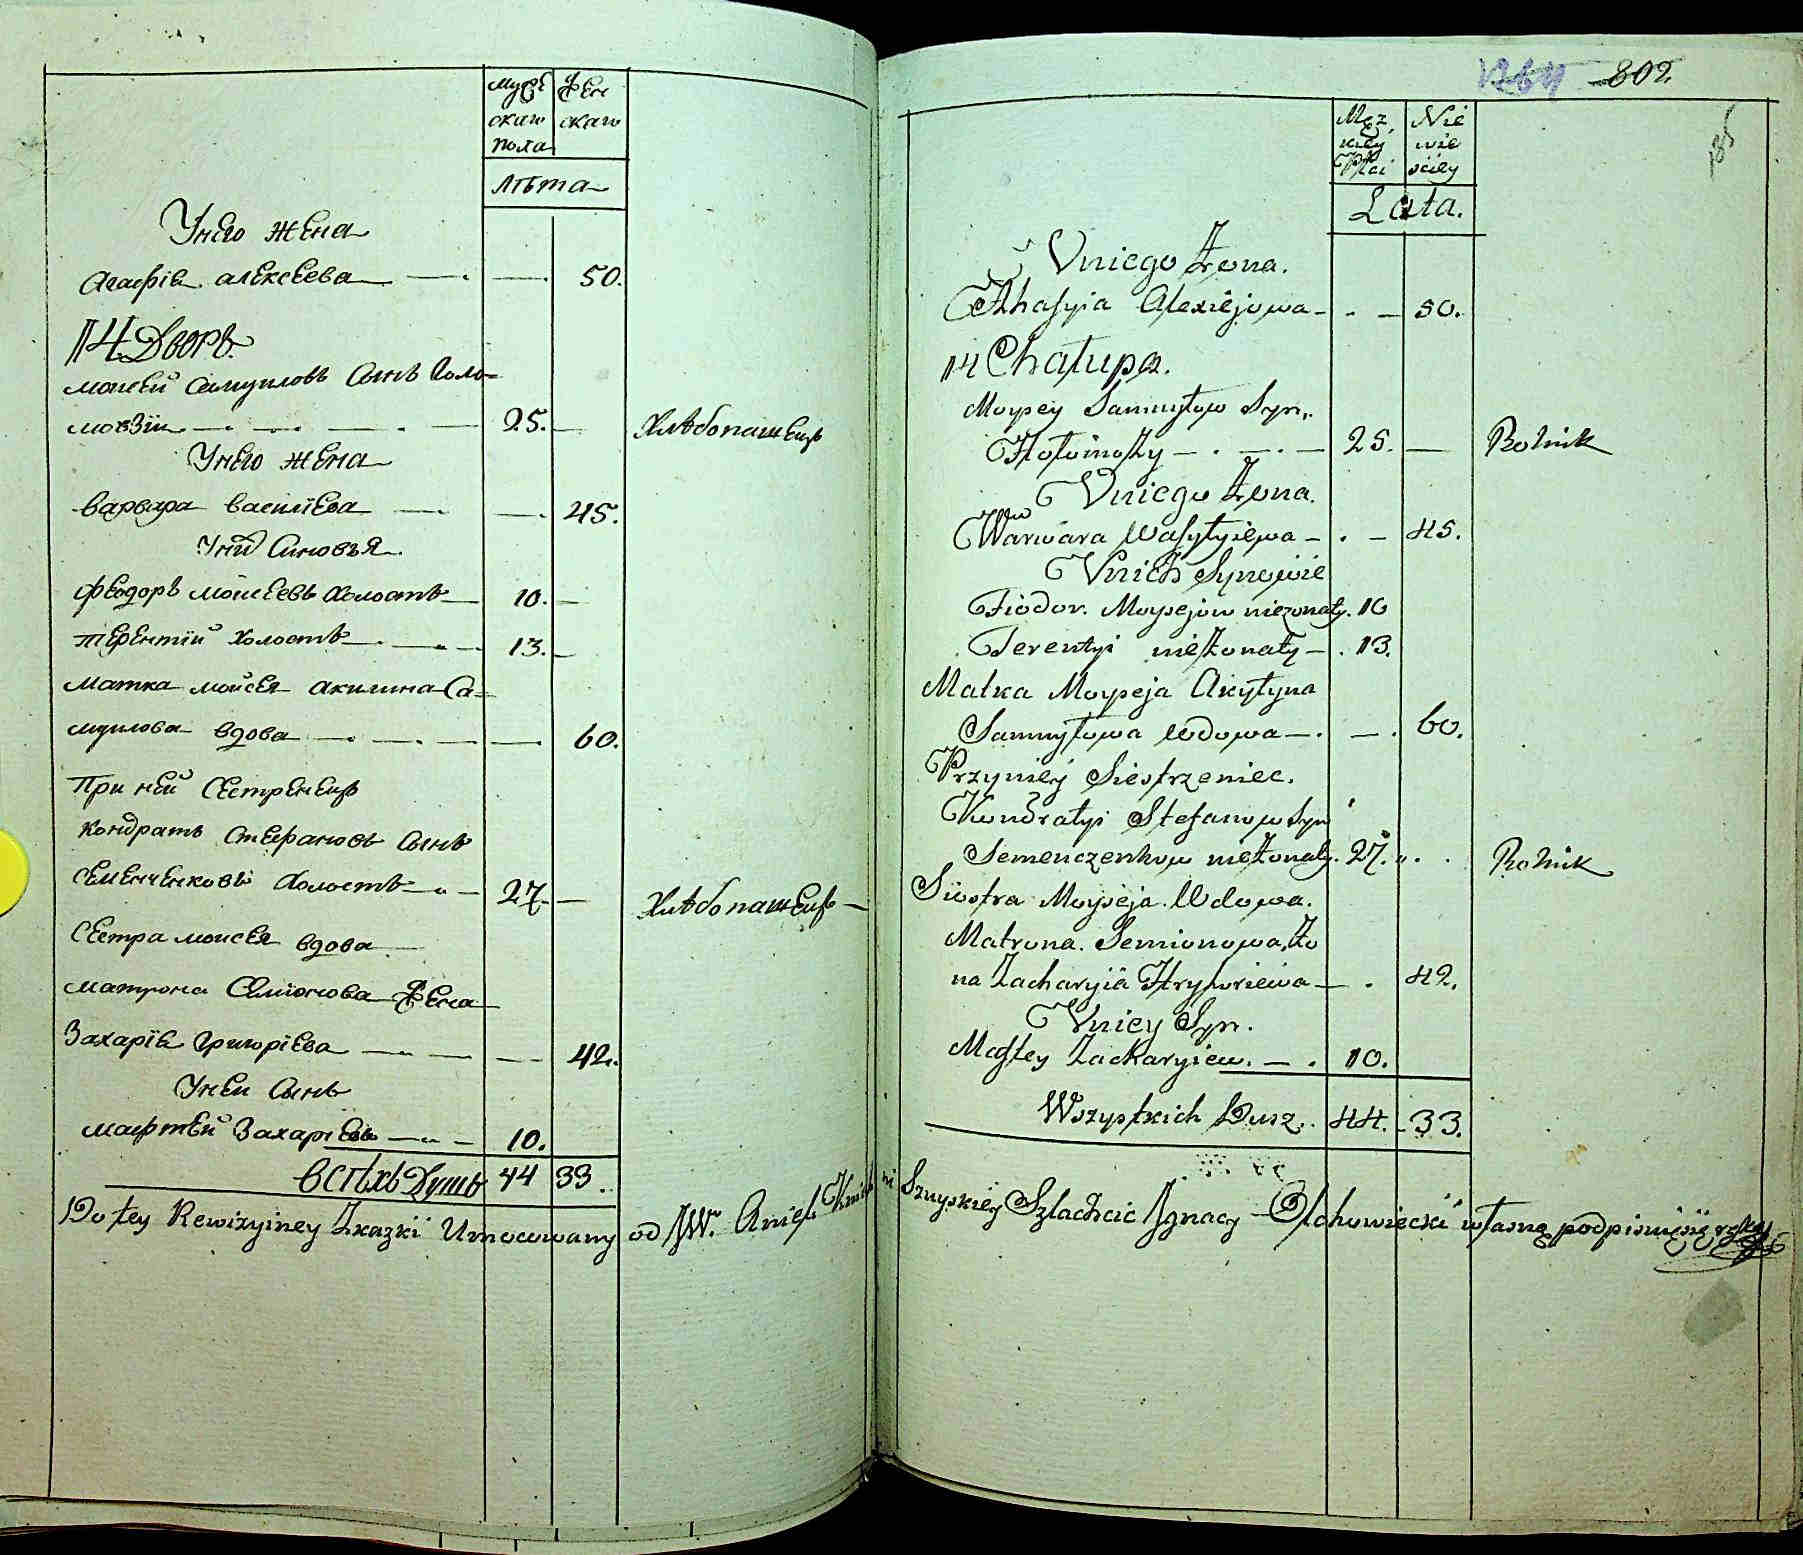 Муж Жен
скаго скаго
пола
Лѣта
Унего жена
Агафія алексеева 50.
14 Дворъ
моисей самуиловъ Сынъ Голо-
мозій 25. Хлѣбопашецъ
Унего жена
варвара василіева 45.
Уних Синовья
феодоръ моисеевъ Холостъ 10.
терентій Холостъ 13.
матка моисея акилина Са-
муилова вдова 60.
При ней Сестренецъ
кондратъ Стефановъ Сынъ
семенченковъ Холостъ 27. Хлѣбопашецъ
Сестра моисея вдова
матрона Семіонова Жена
Захарія Григоріева 42.
Уней Сынъ
мафтей Захаріевъ 10.
всѣхъ Душъ 44 33.
802.
Męz Nie
kiey wie
Płci sciey
Lata.
Vniego Żona.
Ahafyia Alexiejowa 50.
14 Chałupa.
Moysey Samuyłow Syn,
Hołomozy 25. Rolnik
Vniego Żona.
Warwara Wasylyiewa 45.
Vnich Synowie
Fiodor. Moysejow niezonaty. 10
Terentyi nieżonaty 13.
Matka Moyseja Akylyna
Samuyłowa Wdowa 60.
Przyniey Siestrzeniec.
Kondratyi Stefanow Syn
Semenczenkow nieżonaty. 27. Rolnik
Siostra Moyseja Wdowa.
Matrona. Semionowa, Żo
na Zacharyia Hryhoriewa 42.
Vniey Syn.
Maftey Zacharyiew. 10.
Wszystkich Dusz. 44. 33.
Do tey Rewizyiney Skazki Umocowany od JW. Anieli Szuyskiey Szlachcic Jgnacy Olchowiecki własną podpisuię się ręką